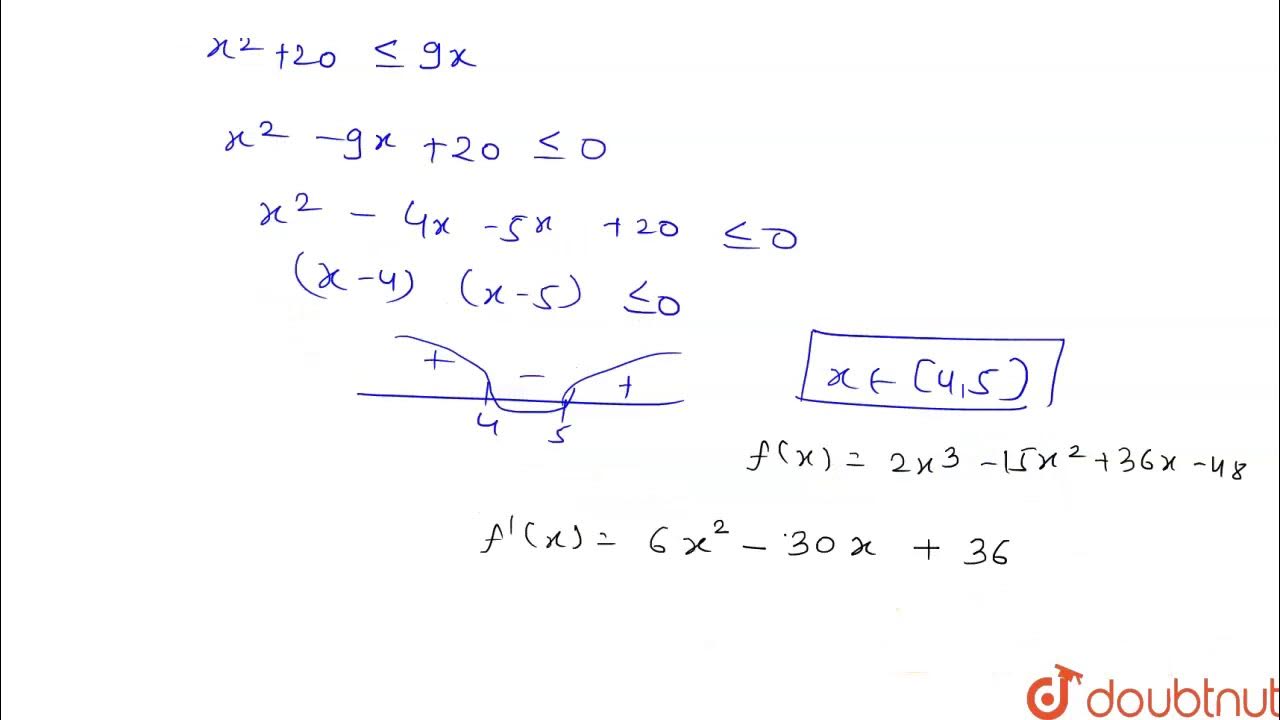 x² + 20 ≤ 9x
x² - 9x + 20 ≤ 0
x² - 4x - 5x + 20 ≤ 0
(x-4) (x-5) ≤ 0
+ - +
4 5
x ∈ [4,5]
f(x) = 2x³ - 15x² + 36x - 48
f'(x) = 6x² - 30x + 36
doubtnut